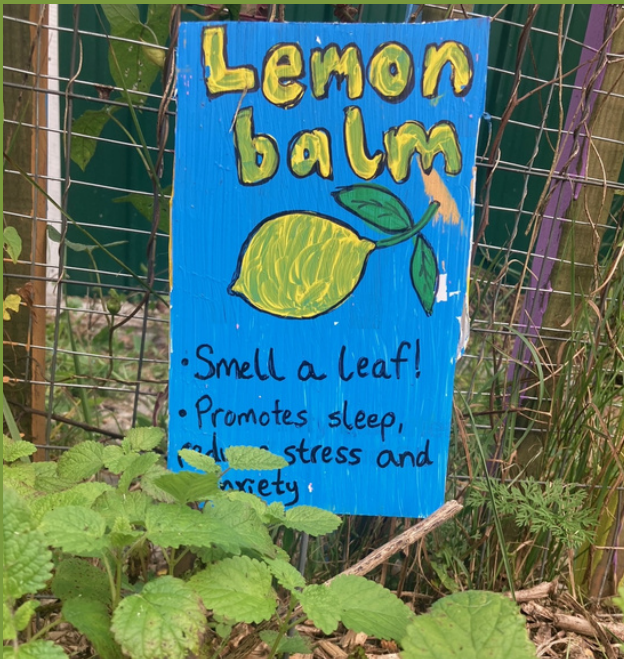 Lemon
balm
• Smell a leaf!
• Promotes sleep,
stress and